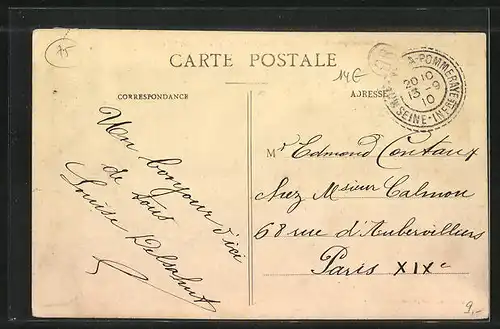 75
CARTE POSTALE
14€
OR
LA-POMMERAYE
20 10
13 -9
10
SEINE-INFRE
CORRESPONDANCE
ADRESSE
Un bonjour d'ici
de tous
Louise
Mr Edmond Contaux
chez Msieur Calmon
68 rue d'Aubervilliers
Paris XIXe
9,-